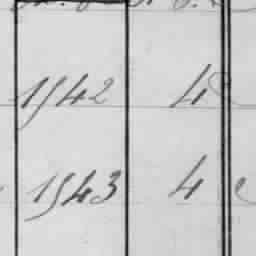 1542 4
1543 4